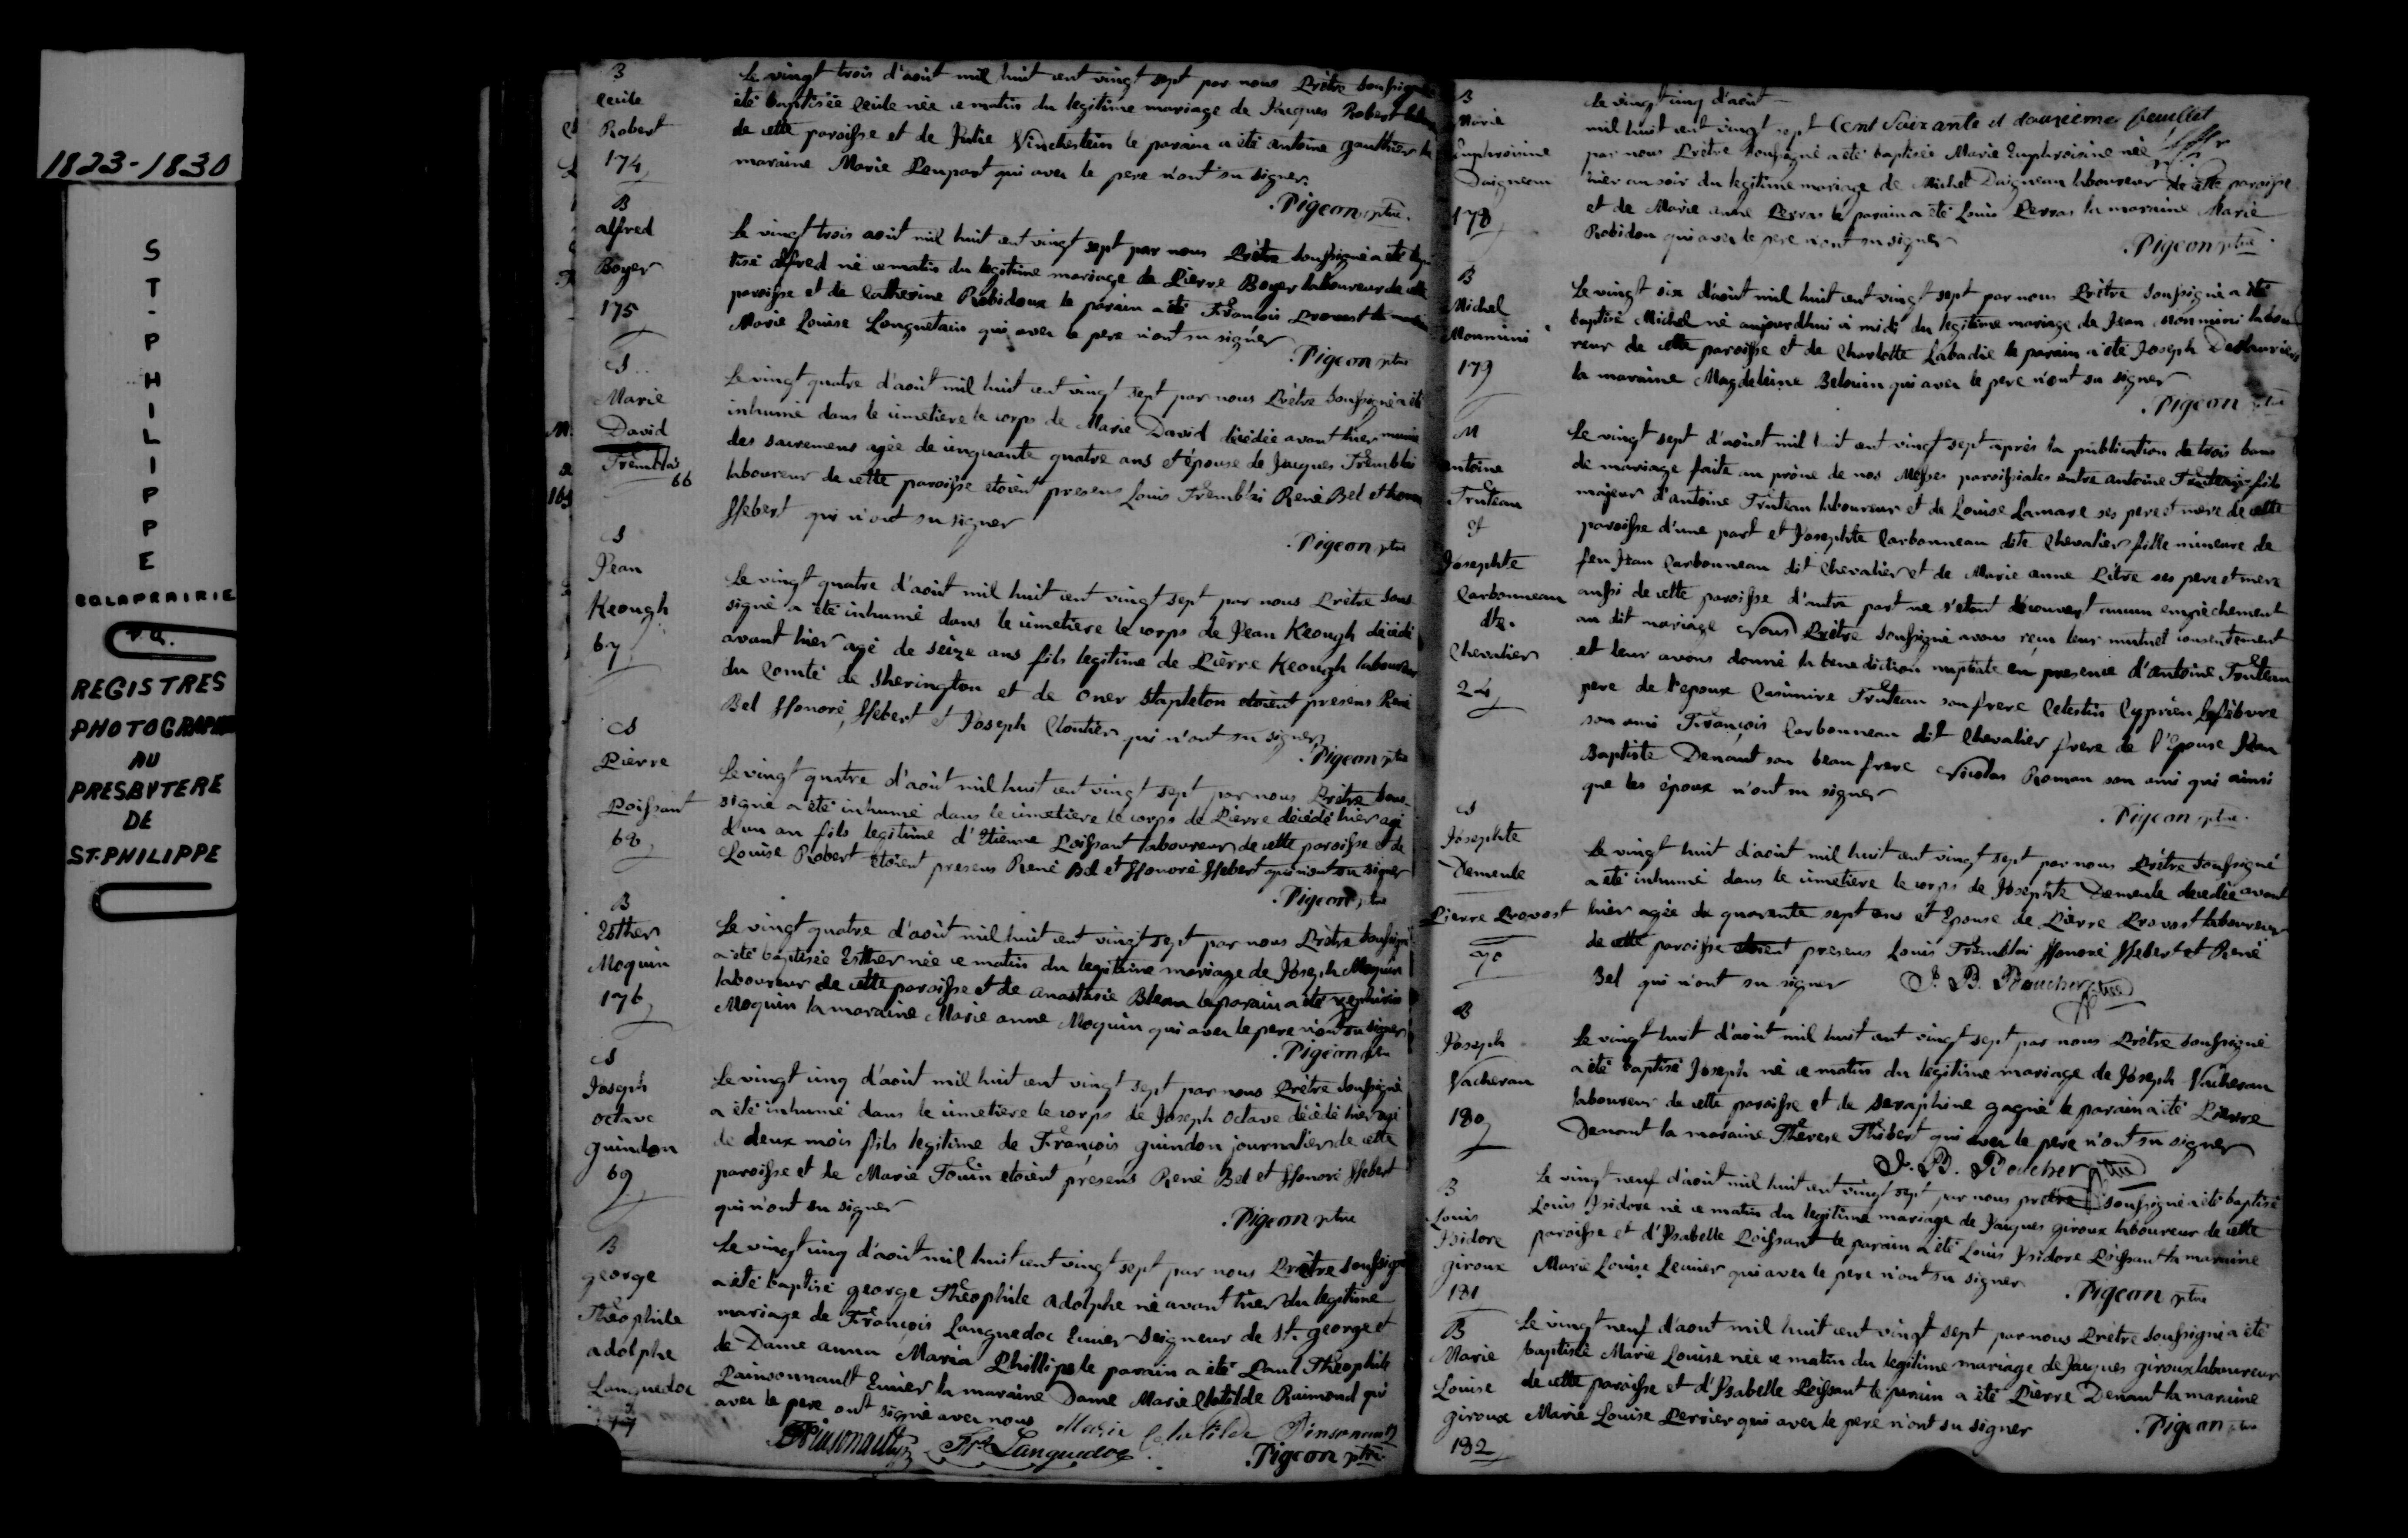 1823-1830
ST-PHILIPPE
CO LAPRAIRIE
P.Q.
REGISTRES
PHOTOGRAPHIES
AU
PRESBYTERE
DE
ST-PHILIPPE
B
Cecile
Robert
174
Le vingt trois d'août mil huit cent vingt sept par nous Prêtre soussigné
été baptisée Cecile née ce matin du legitime mariage de Jacques Robert
de cette paroisse et de Julie Vinchestein le parain a été antoine gauthier la
maraine Marie Poupart qui avec le pere n'ont su signer.
Pigeon ptre
B
alfred
Boyer
175
Le vingt trois août mil huit cent vingt sept par nous Prêtre soussigné a été bap
tisé alfred né ce matin du legitime mariage de Pierre Boyer laboureur de cette
paroisse et de Catherine Robidoux le parain a été François Provost la maraine
Marie Louise Longuetain qui avec le pere n'ont su signer
Pigeon ptre
S
Marie
David
Tremblai
66
Le vingt quatre d'août mil huit cent vingt sept par nous Prêtre soussigné a été
inhumé dans le cimetiere le corps de Marie David décédée avant hier munie
des sacremens agée de cinquante quatre ans et épouse de Jacques Tremblai
laboureur de cette paroisse etoient presens Louis Tremblai René Bel et honoré
Hebert qui n'ont su signer
Pigeon ptre
S
Jean
Keough
67
Le vingt quatre d'août mil huit cent vingt sept par nous Prêtre sous
signé a été inhumé dans le cimetiere le corps de Jean Keough décédé
avant hier agé de seize ans fils legitime de Pierre Keough laboureur
du Comté de Sherington et de Oner Stapleton etoient presens René
Bel Honoré Hebert et Joseph Cloutier qui n'ont su signer
Pigeon ptre
S
Pierre
Poissant
68
Le vingt quatre d'août mil huit cent vingt sept par nous Prêtre sous-
signé a été inhumé dans le cimetiere le corps de Pierre décédé hier agé
d'un an fils legitime d'Etienne Poissant laboureur de cette paroisse et de
Louise Robert etoient presens René Bel et Honoré Hebert qui n'ont su signer
Pigeon ptre
B
Esther
Moquin
176
Le vingt quatre d'août mil huit cent vingt sept par nous Prêtre soussigné
a été baptisée Esther née ce matin du legitime mariage de Joseph Moquin
laboureur de cette paroisse et de anastasie Bleau le parain a été zephirin
Moquin la maraine Marie anne Moquin qui avec le pere n'ont su signer
Pigeon ptre
S
Joseph
octave
guindon
69
Le vingt cinq d'août mil huit cent vingt sept par nous Prêtre soussigné
a été inhumé dans le cimetiere le corps de Joseph octave décédé hier agé
de deux mois fils legitime de François guindon journalier de cette
paroisse et de Marie Fouin etoient presens René Bel et Honoré Hebert
qui n'ont su signer
Pigeon ptre
B
george
Théophile
adolphe
Languedoc
177
Le vingt cinq d'août mil huit cent vingt sept par nous Prêtre soussigné
a été baptisé george Théophile adolphe né avant hier du legitime
mariage de François Languedoc Ecuier Seigneur de St. george et
de Dame anna Maria Phillips le parain a été Paul Théophile
Painsonnault Ecuier la maraine Dame Marie Clotilde Raimond qui
avec le pere ont signé avec nous Marie Clotilde Pinsonault
Pinsonault Frs Languedoc
Pigeon ptre
B
Marie
Euphroisine
Daigneau
178
Le vingt cinq d'août
mil huit cent vingt sept Cent Soixante et douzieme feuillet
par nous Prêtre soussigné a été baptisée Marie Euphroisine née
hier au soir du legitime mariage de Michel Daigneau laboureur de cette paroisse
et de Marie anne Perras le parain a été Louis Perras la maraine Marie
Robidou qui avec le pere n'ont su signer
Pigeon ptre
B
Michel
Monmini
179
Le vingt six d'août mil huit cent vingt sept par nous Prêtre soussigné a été
baptisé Michel né aujourdhui à midi du legitime mariage de Jean Monmini labou
reur de cette paroisse et de Charlotte Labadie le parain a été Joseph Deslauriers
la maraine Magdeleine Belouin qui avec le pere n'ont su signer
Pigeon ptre
M
antoine
Truteau
et
Josephte
Carbonneau
dte.
Chevalier
24
Le vingt sept d'août mil huit cent vingt sept après la publication de trois bans
de mariage faite au prône de nos Messes paroissiales entre antoine Truteau fils
majeur d'antoine Truteau laboureur et de Louise Lamare ses pere et mere de cette
paroisse d'une part et Josephte Carbonneau dite Chevalier fille mineure de
feu Jean Carbonneau dit Chevalier et de Marie anne Pître ses pere et mere
aussi de cette paroisse d'autre part ne s'etant découvert aucun empêchement
au dit mariage Nous Prêtre soussigné avons reçu leur mutuel consentement
et leur avons donné la benediction nuptiale en presence d'antoine Truteau
pere de l'epoux Casimire Truteau son frere Celestin Cyprien Lefebvre
son ami François Carbonneau dit Chevalier frere de l'Epouse Jean
Baptiste Denaut son beau frere Nicolas Roman son ami qui ainsi
que les époux n'ont su signer
Pigeon ptre
S
Josephte
Demeule
Pierre Provost
70
Le vingt huit d'août mil huit cent vingt sept par nous Prêtre soussigné
a été inhumé dans le cimetiere le corps de Josephte Demeule decedée avant
hier agée de quarente sept ans et Epouse de Pierre Provost laboureur
de cette paroisse etoient presens Louis Tremblai Honoré Hebert et René
Bel qui n'ont su signer J. B. Boucher ptre
B
Joseph
Vacheran
180
Le vingt huit d'août mil huit cent vingt sept par nous Prêtre soussigné
a été baptisé Joseph né ce matin du legitime mariage de Joseph Vacheran
laboureur de cette paroisse et de Seraphine gagné le parain a été Pierre
Denaut la maraine Therese Thibert qui avec le pere n'ont su signer
J. B. Boucher ptre
B
Louis
Isidore
giroux
181
Le vingt neuf d'août mil huit cent vingt sept par nous prêtre soussigné a été baptisé
Louis Isidore né ce matin du legitime mariage de Jacques giroux laboureur de cette
paroisse et d'Isabelle Poissant le parain a été Louis Isidore Poissant la maraine
Marie Louise Lecuier qui avec le pere n'ont su signer
Pigeon ptre
B
Marie
Louise
giroux
182
Le vingt neuf d'aout mil huit cent vingt sept par nous Prêtre soussigné a été
baptisée Marie Louise née ce matin du legitime mariage de Jacques giroux laboureur
de cette paroisse et d'Isabelle Poissant le parain a été Pierre Denaut la maraine
Marie Louise Perrier qui avec le pere n'ont su signer
Pigeon ptre